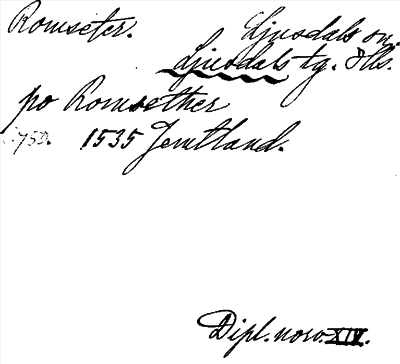 Romseter. Ljusdals sn.
Ljusdals tg. Hls.
po Romsether
:750. 1535 Jemtland.
Dipl. norv. XIV.